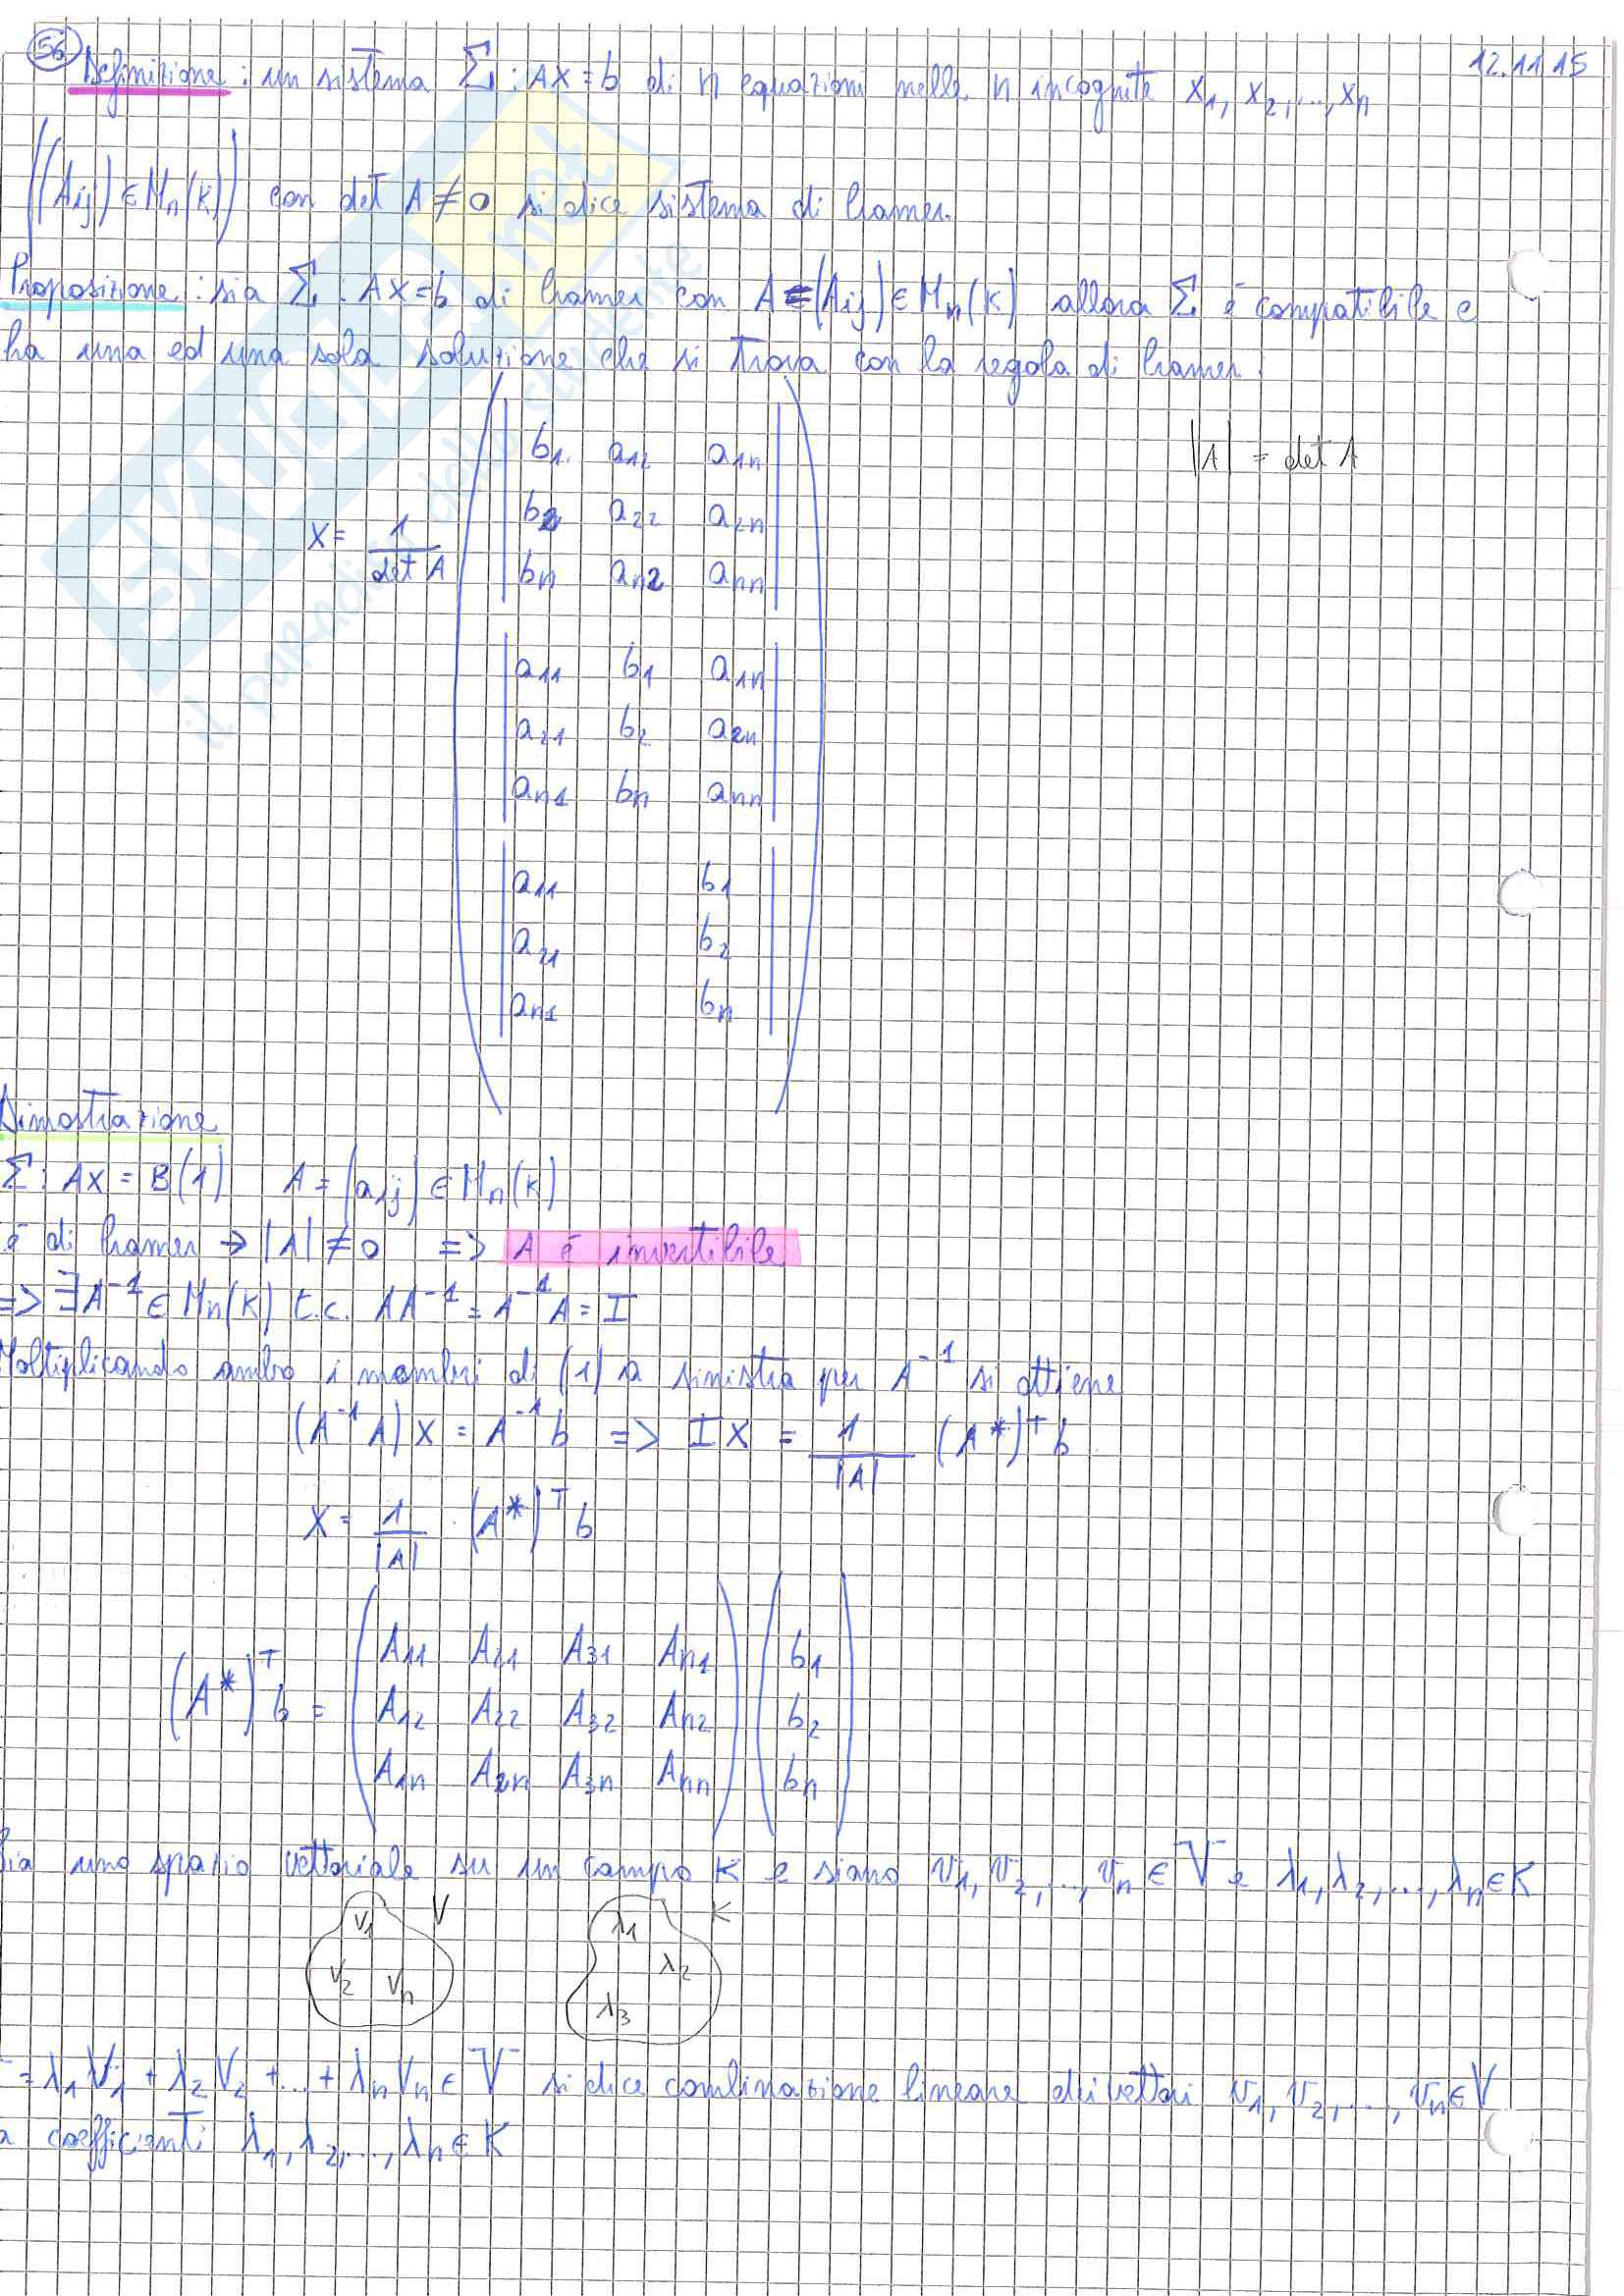 56 12.11.15
Definizione: un sistema Σ: AX=b di n equazioni nelle n incognite x₁, x₂,..., xₙ
((Aij) ∈ Mₙ(K)) con det A ≠ 0 si dice sistema di Cramer.
Proposizione: sia Σ: AX=b di Cramer con A=(Aij) ∈ Mₙ(K) allora Σ è compatibile e
ha una ed una sola soluzione che si trova con la regola di Cramer:
b₁ a₁₂ a₁ₙ |A| = det A
b₂ a₂₂ a₂ₙ
X = 1/det A
bₙ aₙ₂ aₙₙ
a₁₁ b₁ a₁ₙ
a₂₁ b₂ a₂ₙ
aₙ₁ bₙ aₙₙ
a₁₁ b₁
a₂₁ b₂
aₙ₁ bₙ
Dimostrazione
Σ: AX = B (1) A = (aij) ∈ Mₙ(K)
è di Cramer → |A| ≠ 0 => A è invertibile
=> ∃A⁻¹ ∈ Mₙ(K) t.c. AA⁻¹ = A⁻¹A = I
Moltiplicando ambo i membri di (1) a sinistra per A⁻¹ si ottiene
(A⁻¹A)X = A⁻¹b => IX = 1/|A| (A*)ᵀb
X = 1/|A| · (A*)ᵀb
A₁₁ A₂₁ A₃₁ Aₙ₁ b₁
(A*)ᵀb = A₁₂ A₂₂ A₃₂ Aₙ₂ b₂
A₁ₙ A₂ₙ A₃ₙ Aₙₙ bₙ
Sia uno spazio vettoriale su un campo K e siano v₁, v₂,..., vₙ ∈ V e λ₁, λ₂,..., λₙ ∈ K
v₁ V λ₁ K
v₂ vₙ λ₂
λ₃
= λ₁v₁ + λ₂v₂ +...+ λₙvₙ ∈ V si dice combinazione lineare dei vettori v₁, v₂,..., vₙ ∈ V
a coefficienti λ₁, λ₂,..., λₙ ∈ K
SKUOLA.net
il paradiso dello studente